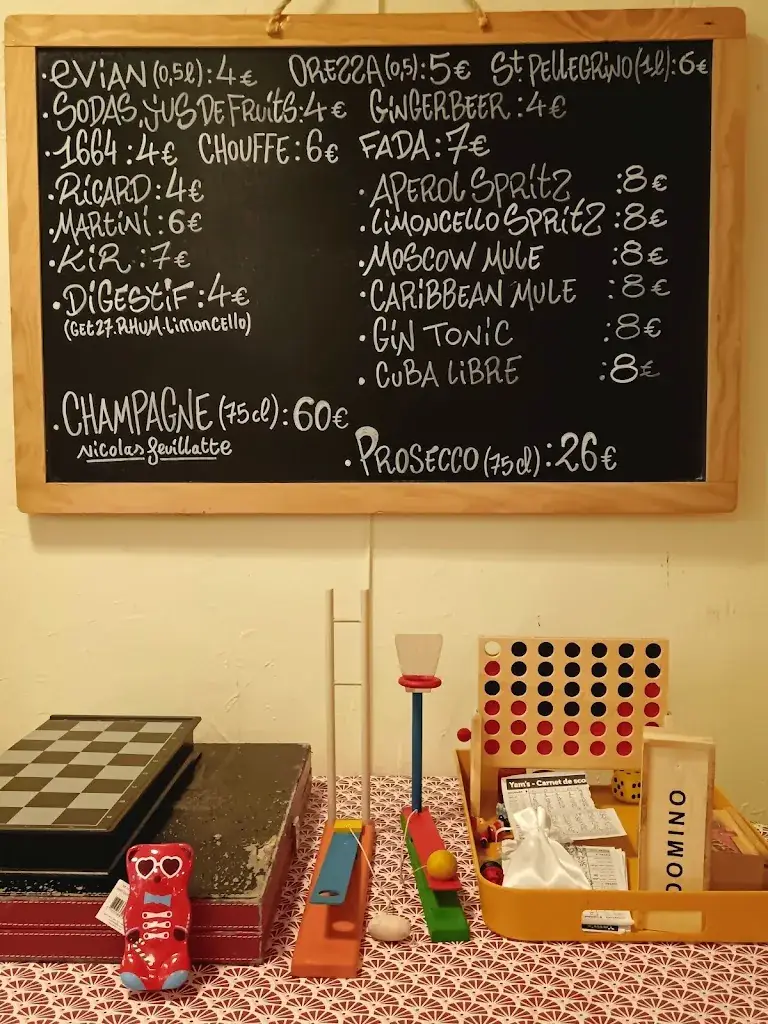 ·EVIAN (0,5l) : 4€ OREZZA (0,5) : 5€ St PELLEGRINO (1l) : 6€
·SODAS, JUS DE FRUITS : 4€ GINGERBEER : 4€
·1664 : 4€ CHOUFFE : 6€ FADA : 7€
·RICARD : 4€
·MARTINI : 6€
·KIR : 7€
·DIGESTIF : 4€
(GET27.RHUM.Limoncello)
·APEROL SPRITZ : 8€
·LIMONCELLO SPRITZ : 8€
·MOSCOW MULE : 8€
·CARIBBEAN MULE : 8€
·GIN TONIC : 8€
·CUBA LIBRE : 8€
·CHAMPAGNE (75cl) : 60€
Nicolas feuillatte
·PROSECCO (75cl) : 26€
Yam's - Carnet de sco
DOMINO